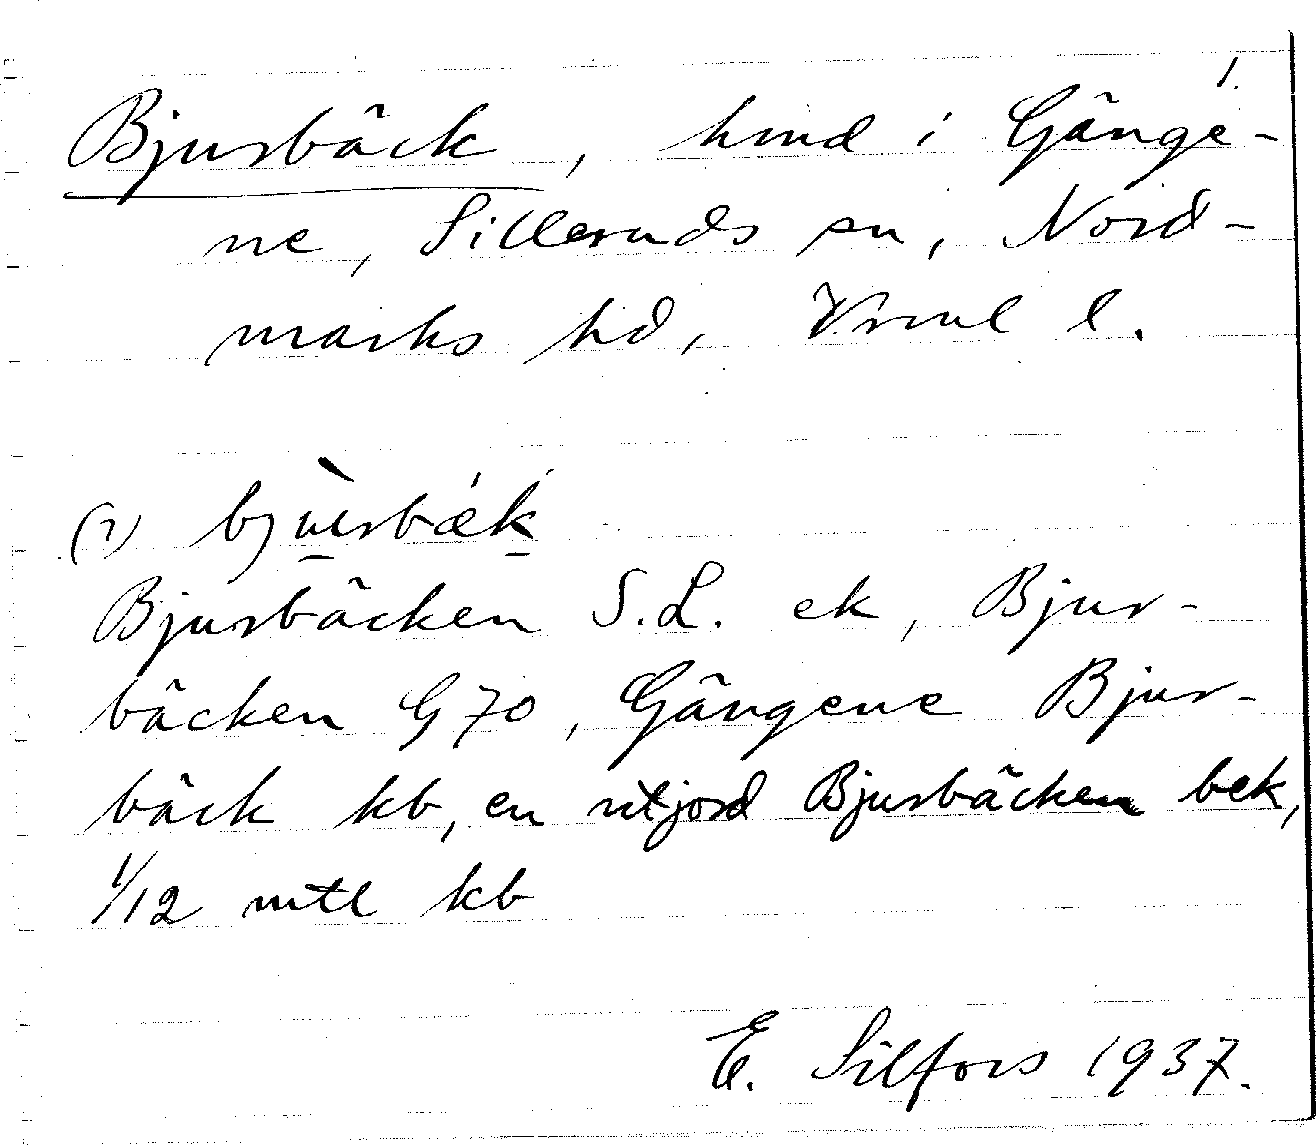 1.
Bjursbäck, hmd i Gänge-
ne, Silleruds sn, Nord-
marks hd, Vrml l.
(1) bjùrsbǽk
Bjursbäcken S.L. ek, Bjur-
bäcken G 70, Gängene Bjur-
bäck kb, en utjord Bjursbäcken bek,
1/12 mtl kb
E. Silfors 1937.